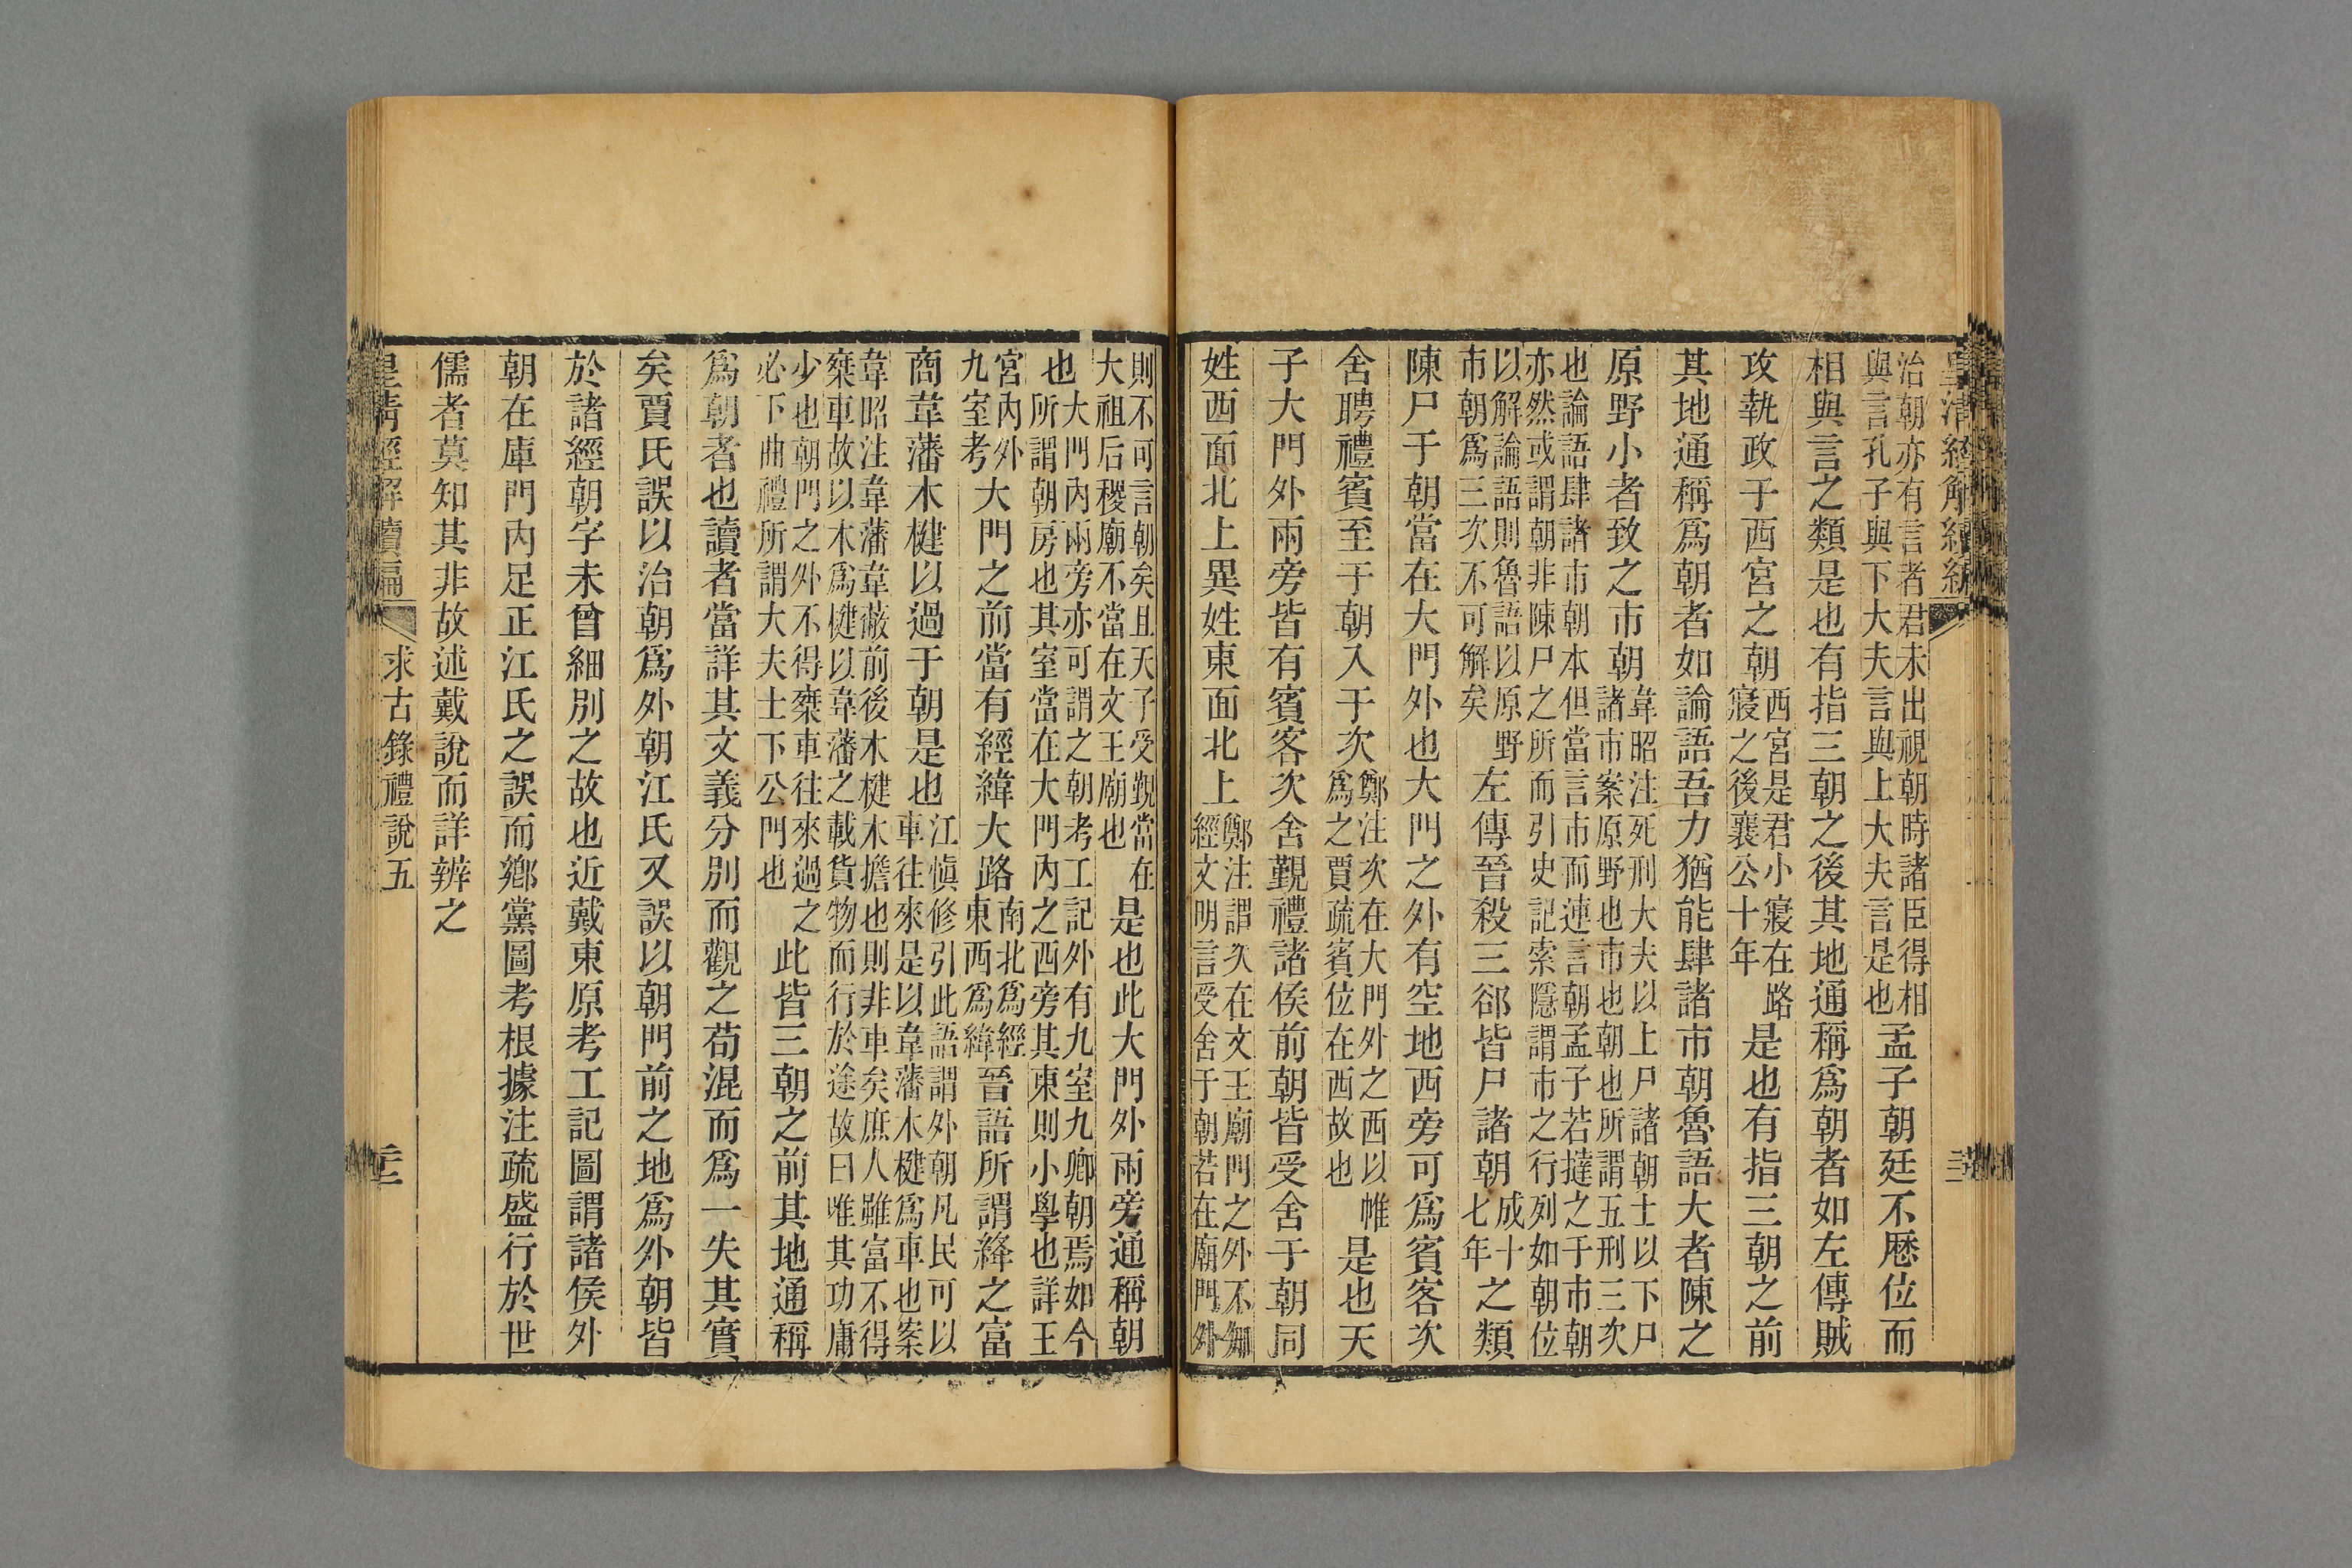 皇清經解續編
治朝亦有言者君未出視朝時諸臣得相
與言孔子與下大夫言與上大夫言是也
孟子朝廷不歷位而
相與言之類是也有指三朝之後其地通稱爲朝者如左傳賊
攻執政于西宮之朝
西宮是君小寢在路
寢之後襄公十年
是也有指三朝之前
其地通稱爲朝者如論語吾力猶能肆諸市朝魯語大者陳之
原野小者致之市朝
韋昭注死刑大夫以上尸諸朝士以下尸
諸市案原野也市也朝也所謂五刑三次
也論語肆諸市朝本但當言市而連言朝孟子若撻之于市朝
亦然或謂朝非陳尸之所而引史記索隱謂市之行列如朝位
以解論語則魯語以原野
市朝爲三次不可解矣
左傳晉殺三郤皆尸諸朝
成十
七年
之類
陳尸于朝當在大門外也大門之外有空地西旁可爲賓客次
舍聘禮賓至于朝入于次
鄭注次在大門外之西以帷
爲之賈疏賓位在西故也
是也天
子大門外兩旁皆有賓客次舍覲禮諸侯前朝皆受舍于朝同
姓西面北上異姓東面北上
鄭注謂次在文王廟門之外不知
經文明言受舍于朝若在廟門外
則不可言朝矣且天子受覲當在
大祖后稷廟不當在文王廟也
是也此大門外兩旁通稱朝
也大門內兩旁亦可謂之朝考工記外有九室九卿朝焉如今
所謂朝房也其室當在大門內之西旁其東則小學也詳王
宮內外
九室考
大門之前當有經緯大路
南北爲經
東西爲緯
晉語所謂絳之富
商韋藩木楗以過于朝是也
江愼修引此語謂外朝凡民可以
車往來是以韋藩木楗爲車也案
韋昭注韋藩韋蔽前後木楗木擔也則非車矣庶人雖富不得
椉車故以木爲楗以韋藩之載貨物而行於途故曰唯其功庸
少也朝門之外不得椉車往來過之
必下曲禮所謂大夫士下公門也
此皆三朝之前其地通稱
爲朝者也讀者當詳其文義分別而觀之苟混而爲一失其實
矣賈氏誤以治朝爲外朝江氏又誤以朝門前之地爲外朝皆
於諸經朝字未曾細別之故也近戴東原考工記圖謂諸侯外
朝在庫門內足正江氏之誤而鄉黨圖考根據注疏盛行於世
儒者莫知其非故述戴說而詳辨之
皇清經解續編
求古錄禮說五